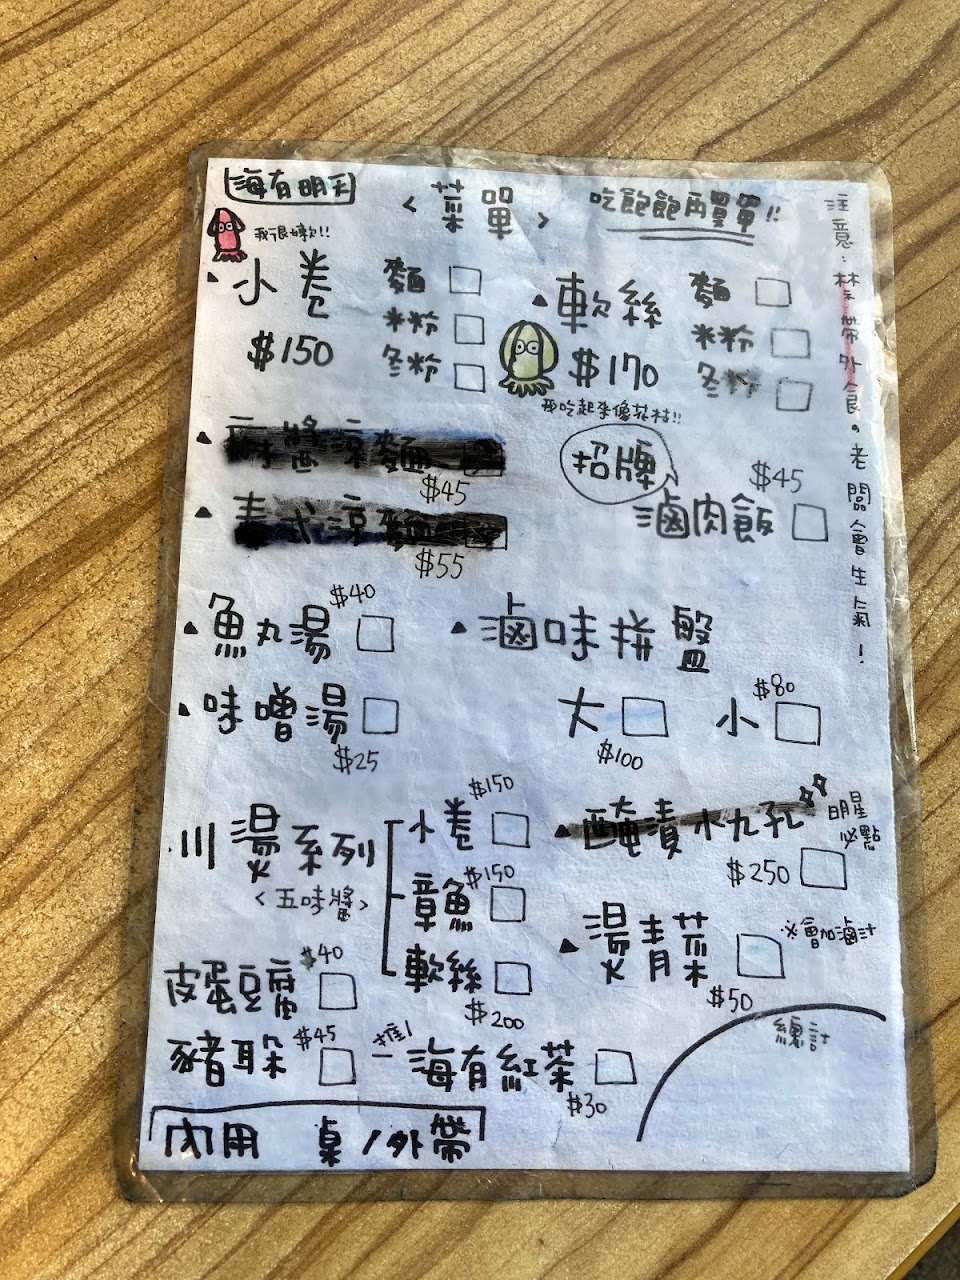 海有明天
<菜單>
吃飽飽再買單!!
我很嫩欸!!
小卷
$150
麵
米粉
冬粉
軟絲
$170
麵
米粉
冬粉
我吃起來像花枝!!
麻醬涼麵
$45
涼麵
$55
招牌
滷肉飯
$45
魚丸湯
$40
味噌湯
$25
滷味拼盤
大
$100
小
$80
川燙系列
<五味醬>
小卷
$150
章魚
$150
軟絲
$200
醃漬小九孔
明星
必點
$250
燙青菜
$50
※會加滷汁
皮蛋豆腐
$40
豬耳朵
$45
推!
海有紅茶
$30
總計
內用 桌/外帶
注意:禁帶外食。老闆會生氣!